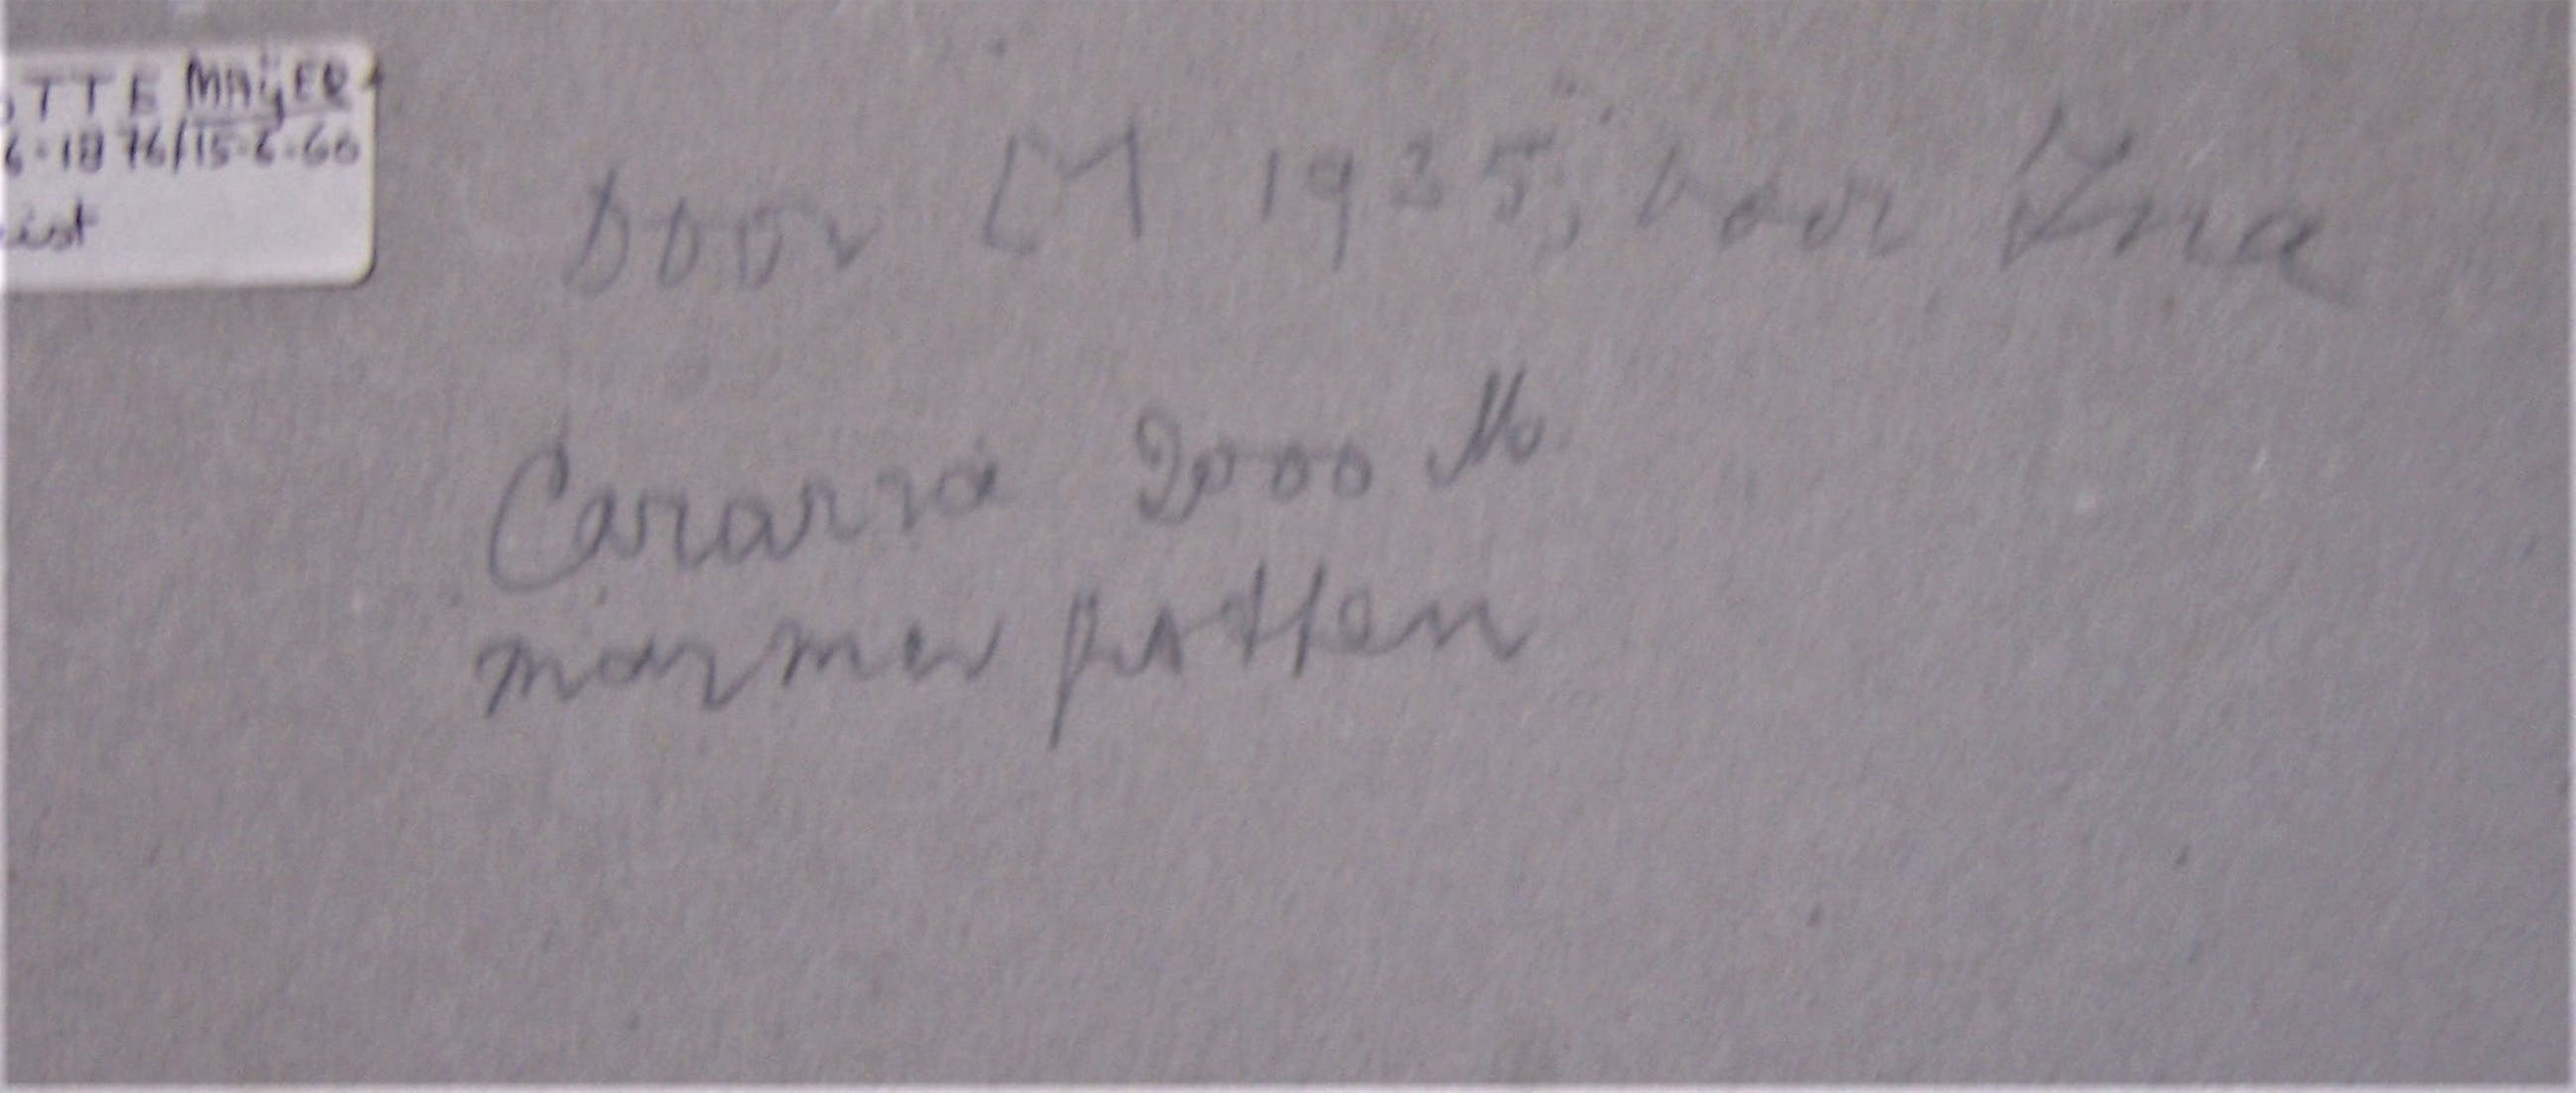 OTTE MAŸER
6-1876/15-6-60
ist
Door LM 1925, voor Ina
Cararra 2000 M.
marmer putten